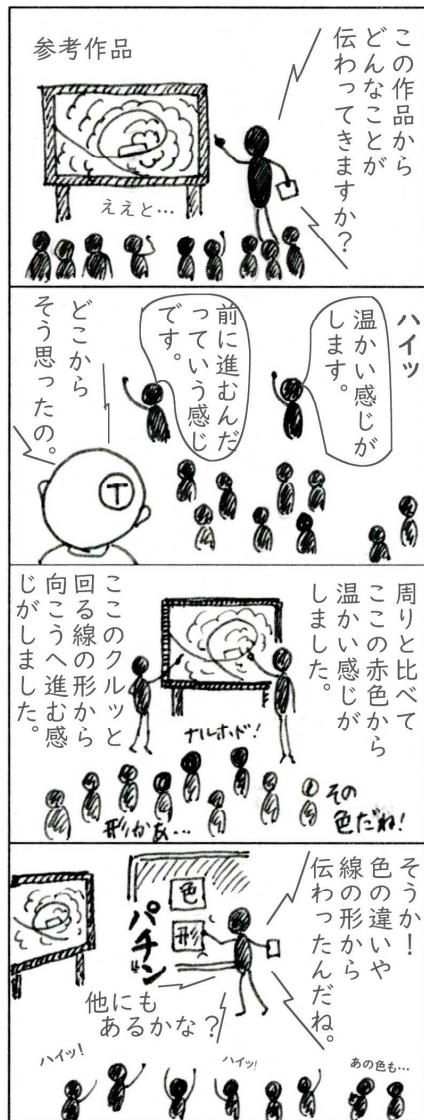 参考作品
この作品から
どんなことが
伝わってきますか？
ええと…
ハイッ
温かい感じが
します。
前に進むんだ
っていう感じ
です。
どこから
そう思ったの。
T
周りと比べて
ここの赤色から
温かい感じが
しました。
ここのクルッと
回る線の形から
向こうへ進む感
じがしました。
ナルホド!
形かぁ…
その
色だね!
そうか！
色の違いや
線の形から
伝わったんだね。
色
形
パチン
他にも
あるかな？
ハイッ!
ハイッ!
あの色も…